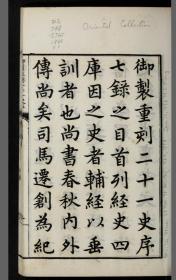 御製重刻二十一史序
七錄之目首列經史四
庫因之史者輔經以垂
訓者也尚書春秋內外
傳尚矣司馬遷創為紀
Oriental Collection